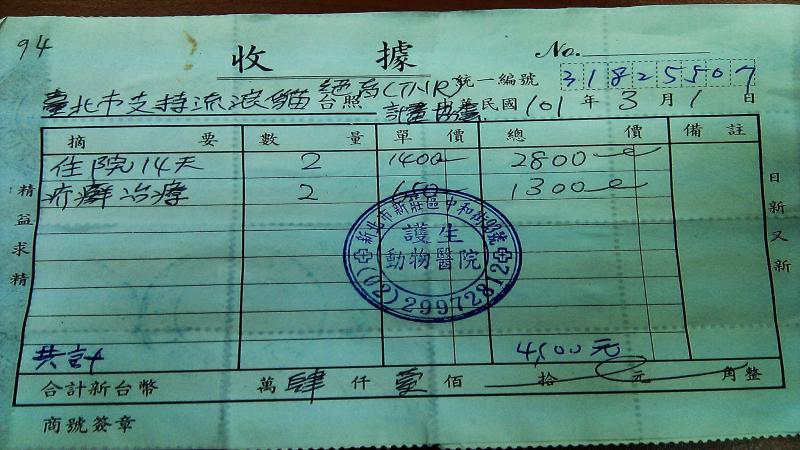 94
收據 No.
統一編號 31825507
臺北市支持流浪貓絕育(TNR)
計畫協會 台照 中華民國101年3月1日
摘要 數量 單價 總價 備註
住院14天 2 1400 2800
疥癬治療 2 650 1300
新北市新莊區中和街93號
護生
動物醫院
(02)29972812
精益求精
日新又新
共計 4,100元
合計新台幣 萬肆仟壹佰 拾 元 角整
商號簽章